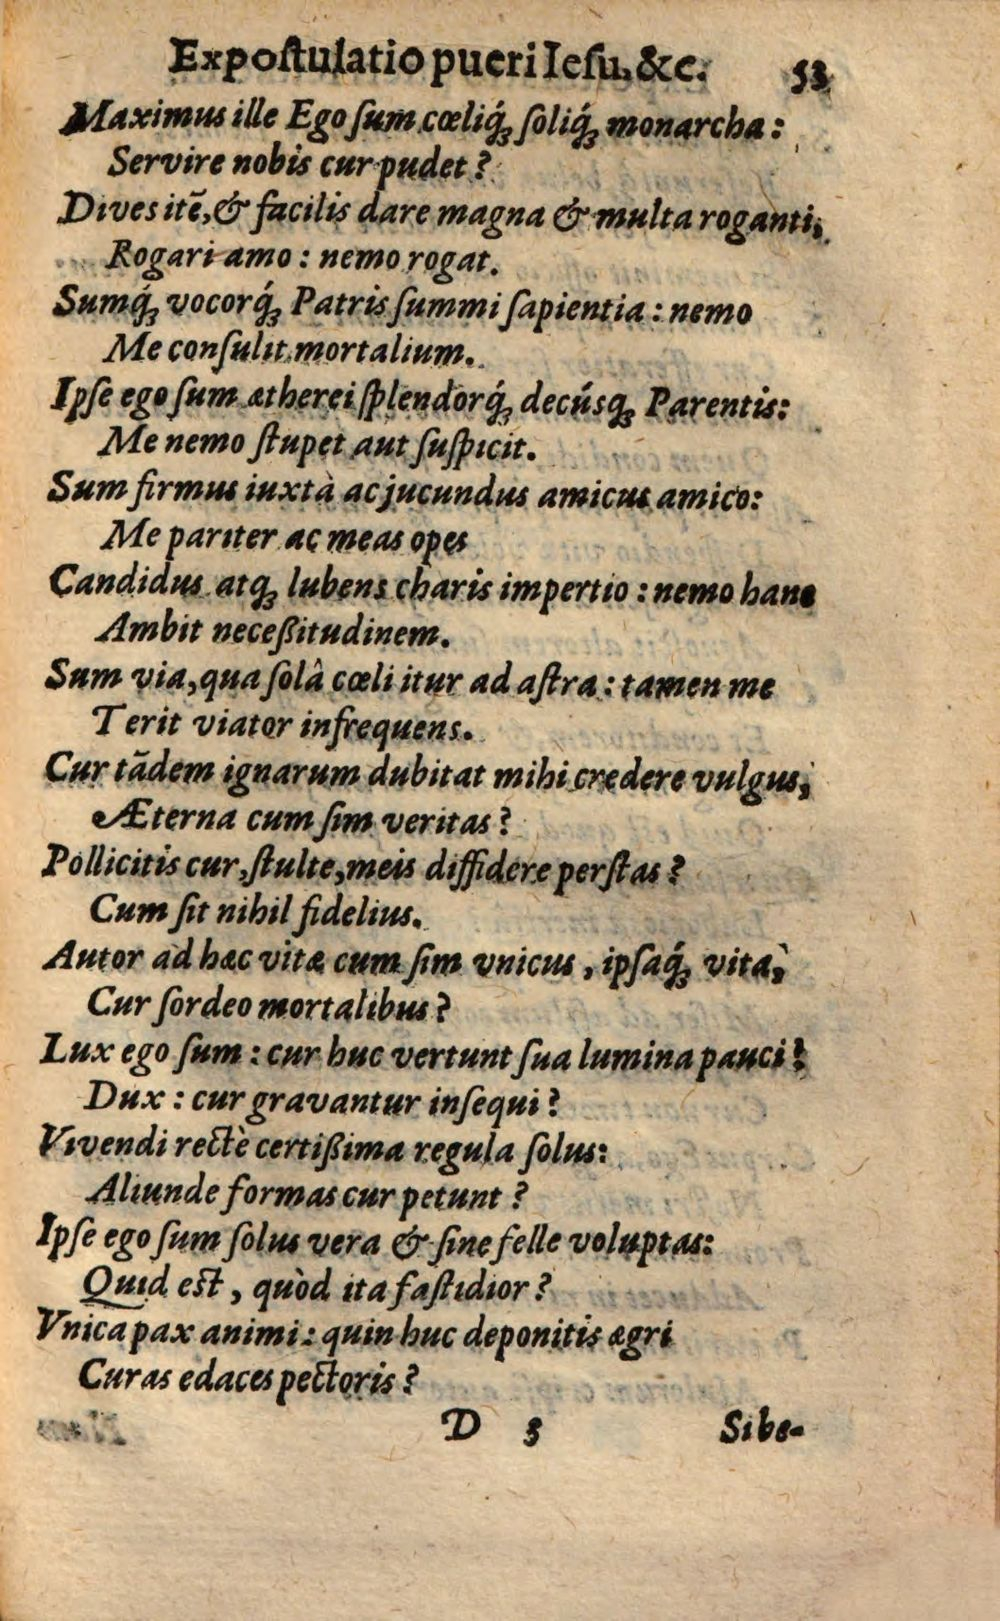 Expoſtulatio pueri Ieſu, &c. 53
Maximus ille Ego ſum cœliq́ꝫ ſoliq́ꝫ monarcha:
Servire nobis cur pudet?
Dives itẽ, & facilis dare magna & multa roganti,
Rogari amo: nemo rogat.
Sumq́ꝫ vocorq́ꝫ Patris ſummi ſapientia: nemo
Me conſulit mortalium.
Ipſe ego ſum ætherei ſplendorq́ꝫ decúsqꝫ Parentis:
Me nemo ſtupet aut ſuſpicit.
Sum firmus iuxtà ac jucundus amicus amico:
Me pariter ac meas opes
Candidus atqꝫ lubens charis impertio: nemo hanc
Ambit neceßitudinem.
Sum via, qua ſolâ cœli itur ad aſtra: tamen me
Terit viator infrequens.
Cur tãdem ignarum dubitat mihi credere vulgus,
Æterna cum ſim veritas?
Pollicitis cur, ſtulte, meis diffidere perſtas?
Cum ſit nihil fidelius.
Autor ad hæc vitæ cum ſim vnicus, ipſaq́ꝫ vita,
Cur ſordeo mortalibus?
Lux ego ſum: cur huc vertunt ſua lumina pauci?
Dux: cur gravantur inſequi?
Vivendi rectè certißima regula ſolus:
Aliunde formas cur petunt?
Ipſe ego ſum ſolus vera & ſine felle voluptas:
Quid eſt, quòd ita faſtidior?
Vnica pax animi: quin huc deponitis ægri
Curas edaces pectoris?
D 3 Sibe-